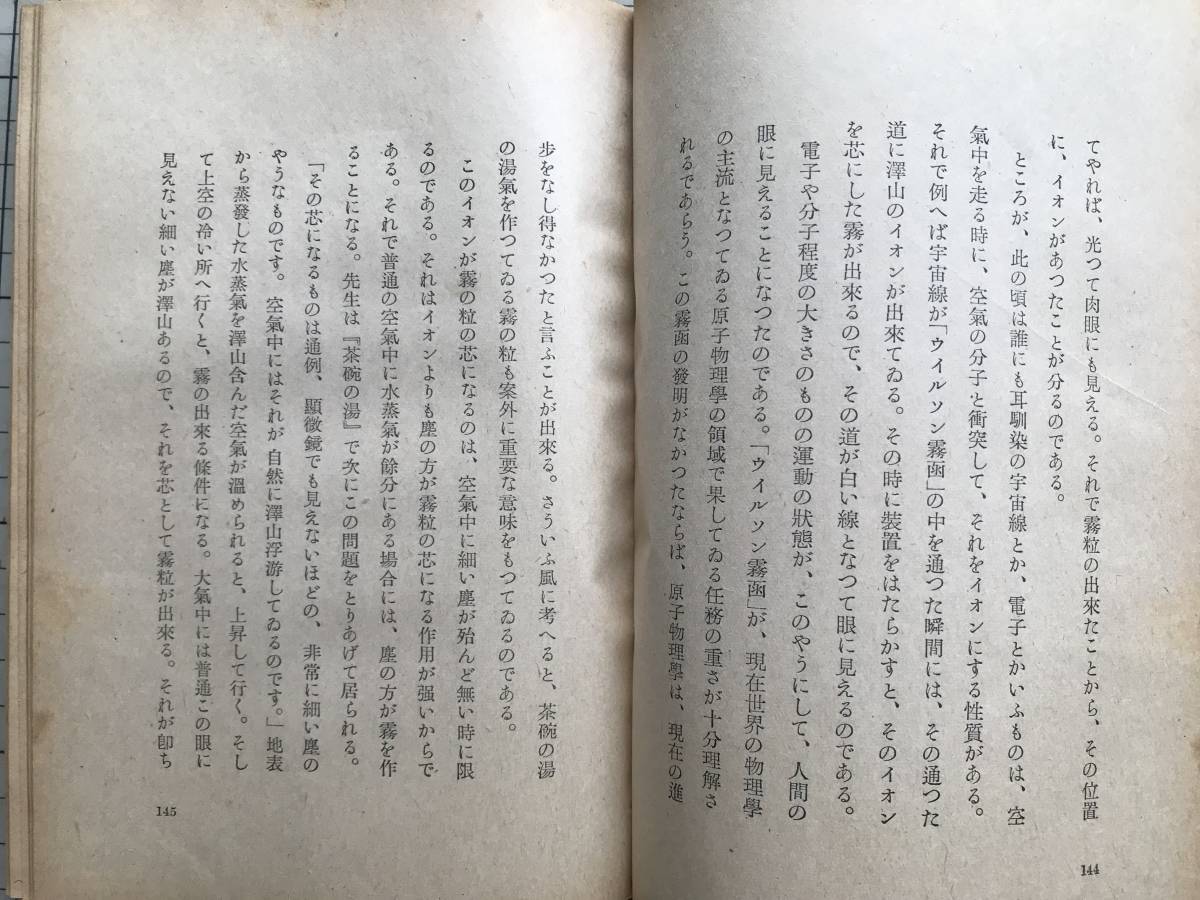 てやれば、光つて肉眼にも見える。それで霧粒の出來たことから、その位置
に、イオンがあつたことが分るのである。
ところが、此の頃は誰にも耳馴染の宇宙線とか、電子とかいふものは、空
氣中を走る時に、空氣の分子と衝突して、それをイオンにする性質がある。
それで例へば宇宙線が「ウイルソン霧函」の中を通つた瞬間には、その通つた
道に澤山のイオンが出來てゐる。その時に裝置をはたらかすと、そのイオン
を芯にした霧が出來るので、その道が白い線となつて眼に見えるのである。
電子や分子程度の大きさのものの運動の狀態が、このやうにして、人間の
眼に見えることになつたのである。「ウイルソン霧函」が、現在世界の物理學
の主流となつてゐる原子物理學の領域で果してゐる任務の重さが十分理解さ
れるであらう。この霧函の發明がなかつたならば、原子物理學は、現在の進
144
步をなし得なかつたと言ふことが出來る。さういふ風に考へると、茶碗の湯
の湯氣を作つてゐる霧の粒も案外に重要な意味をもつてゐるのである。
このイオンが霧の粒の芯になるのは、空氣中に細い塵が殆んど無い時に限
るのである。それはイオンよりも塵の方が霧粒の芯になる作用が强いからで
ある。それで普通の空氣中に水蒸氣が餘分にある場合には、塵の方が霧を作
ることになる。先生は『茶碗の湯』で次にこの問題をとりあげて居られる。
「その芯になるものは通例、顯微鏡でも見えないほどの、非常に細い塵の
やうなものです。空氣中にはそれが自然に澤山浮游してゐるのです。」地表
から蒸發した水蒸氣を澤山含んだ空氣が溫められると、上昇して行く。そし
て上空の冷い所へ行くと、霧の出來る條件になる。大氣中には普通この眼に
見えない細い塵が澤山あるので、それを芯として霧粒が出來る。それが卽ち
145